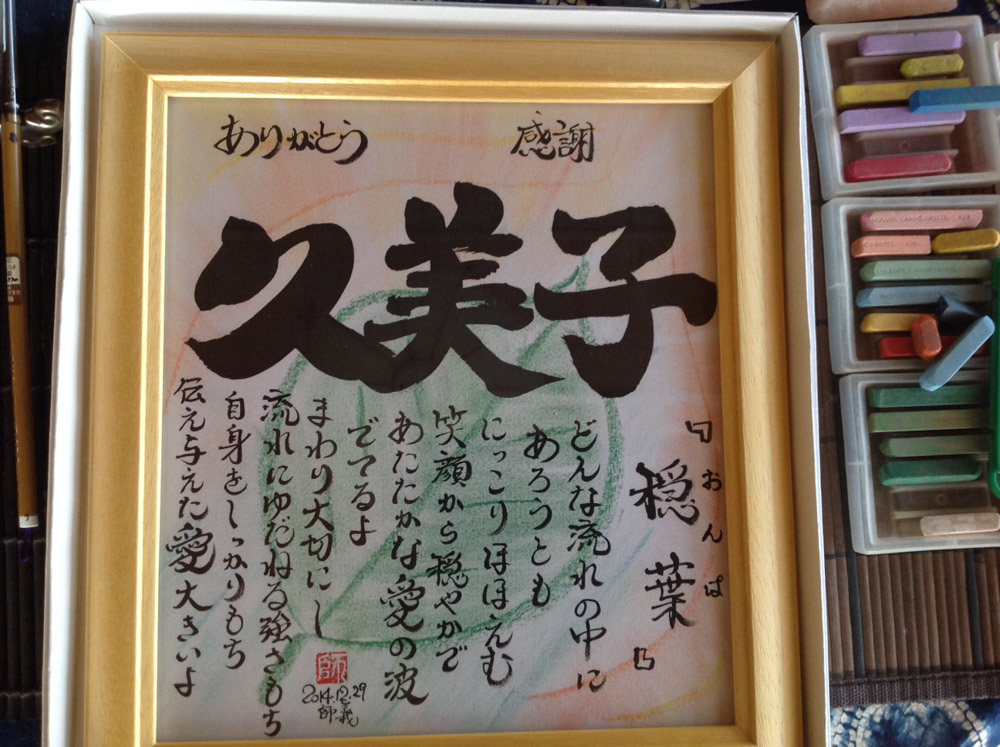 ありがとう
感謝
久美子
『穏葉』
おんは
どんな流れの中に
あろうとも
にっこりほほえむ
笑顔から穏やかで
あたたかな愛の波
でてるよ
まわり大切にし
流れにゆだねる強さもち
自身をしっかりもち
伝え与えた愛大きいよ
2014.12.29